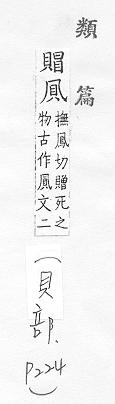 類篇
賵鳳撫鳳切贈死之
物古作鳳文二
(貝部. P224)